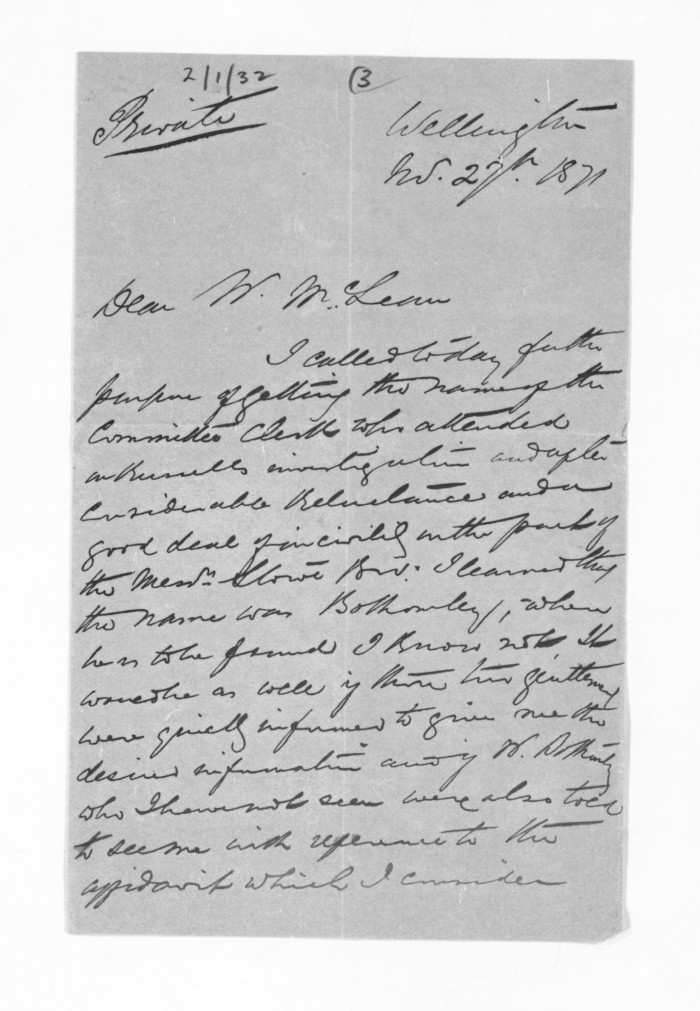 2/1/32 (3
Private
Wellington
Nov. 27th 1871
Dear Mr. McLean
I called to day for the
purpose of getting the name of the
Committee Clerk who attended
on Russells investigation and after
considerable reluctance and a
good deal of incivility on the part of
the Messrs. Stowe Bros. I learned that
the name was Bothamley, where
he is to be found I know not. It
would be as well if those two gentlemen
were quietly informed to give me the
desired information and if Mr. Bothamley
who I have not seen were also told
to see me with reference to the
affidavit which I consider